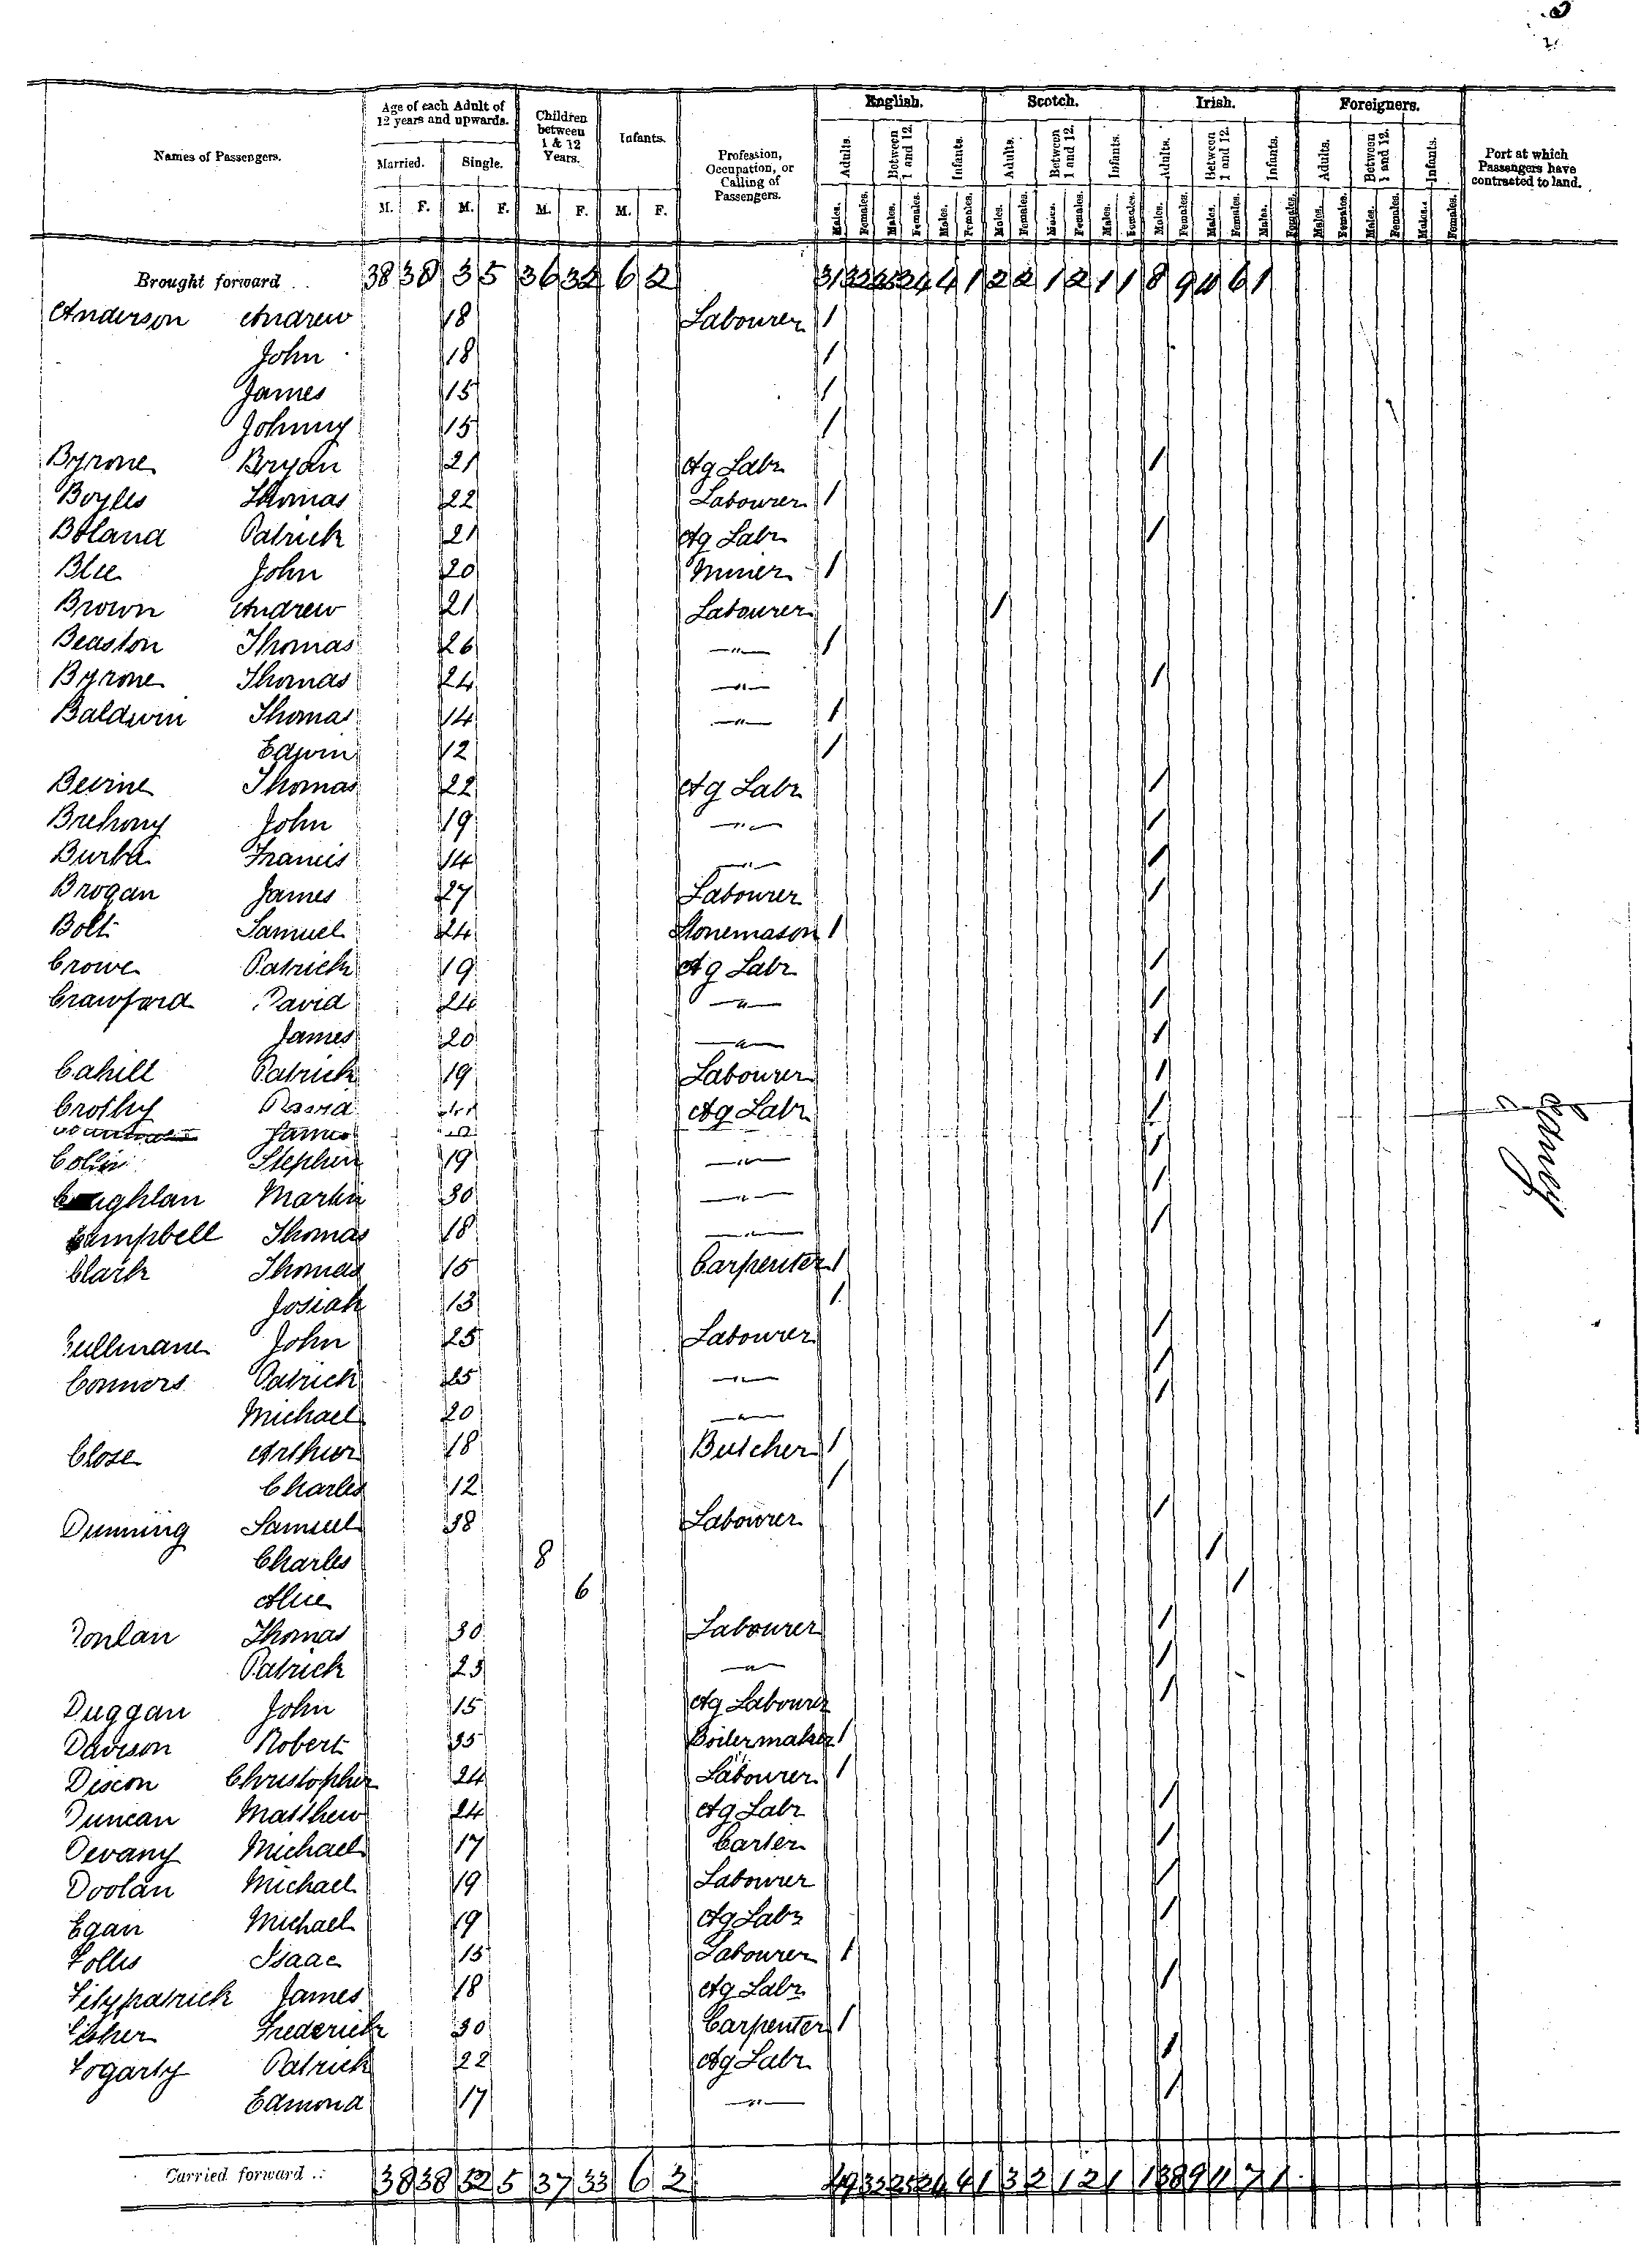 Names of Passengers. Age of each Adult of 12 years and upwards. Married. Single. M. F. M. F. Children between 1 & 12 Years. M. F. Infants. M. F. Profession, Occupation, or Calling of Passengers. English. Scotch. Irish. Foreigners. Adults. Between 1 and 12. Infants. Males. Females. Port at which Passengers have contracted to land.
Brought forward .. 38 38 3 5 36 32 6 2 4 1 2 2 1 2 1 1 8 9 6 1
Anderson Andrew 18 Labourer 1
John 18 1
James 15 1
Johnny 15 1
Byrone Bryan 21 Ag Labr 1
Boyles Thomas 22 Labourer 1
Boland Patrick 21 Ag Labr 1
Blee John 20 Miner 1
Brown Andrew 21 Labourer 1
Beaston Thomas 26 —"— 1
Byrone Thomas 24 —"— 1
Baldwin Thomas 14 —"— 1
Edwin 12 1
Beirne Thomas 22 Ag Labr 1
Brehony John 19 —"— 1
Burke Francis 14 —"— 1
Brogan James 27 Labourer 1
Bolt Samuel 24 Stonemason 1
Crowe Patrick 19 Ag Labr 1
Crawford David 24 —"— 1
James 20 —"— 1
Cahill Patrick 19 Labourer 1
Crothy Ag Labr 1
James 1
Colin Stephen 19 —"— 1
Martin 30 —"— 1
Campbell Thomas 18 —"— 1
Clark Thomas 15 Carpenter 1
Josiah 13 1
Cullinane John 25 Labourer 1
Connors Patrick 25 —"— 1
Michael 20 —"— 1
Close Arthur 18 Butcher 1
Charles 12 1
Dunning Samuel 38 Labourer 1
Charles 8 1
Alice 6 1
Donlan Thomas 30 Labourer 1
Patrick 23 —"— 1
Duggan John 15 Ag Labourer 1
Davison Robert 35 Boilermaker 1
Discon Christopher 24 Labourer 1
Duncan Matthew 24 Ag Labr 1
Devany Michael 17 Carter 1
Doolan Michael 19 Labourer 1
Egan Michael 19 Ag Labr 1
Follis Isaac 15 Labourer 1
Fitzpatrick James 18 Ag Labr 1
Fisher Frederick 30 Carpenter 1
Fogarty Patrick 22 Ag Labr 1
Edmond 17 —"— 1
Carried forward .. 38 38 52 5 37 33 6 2 49 4 1 3 2 1 2 1 1 38 9 11 7 1